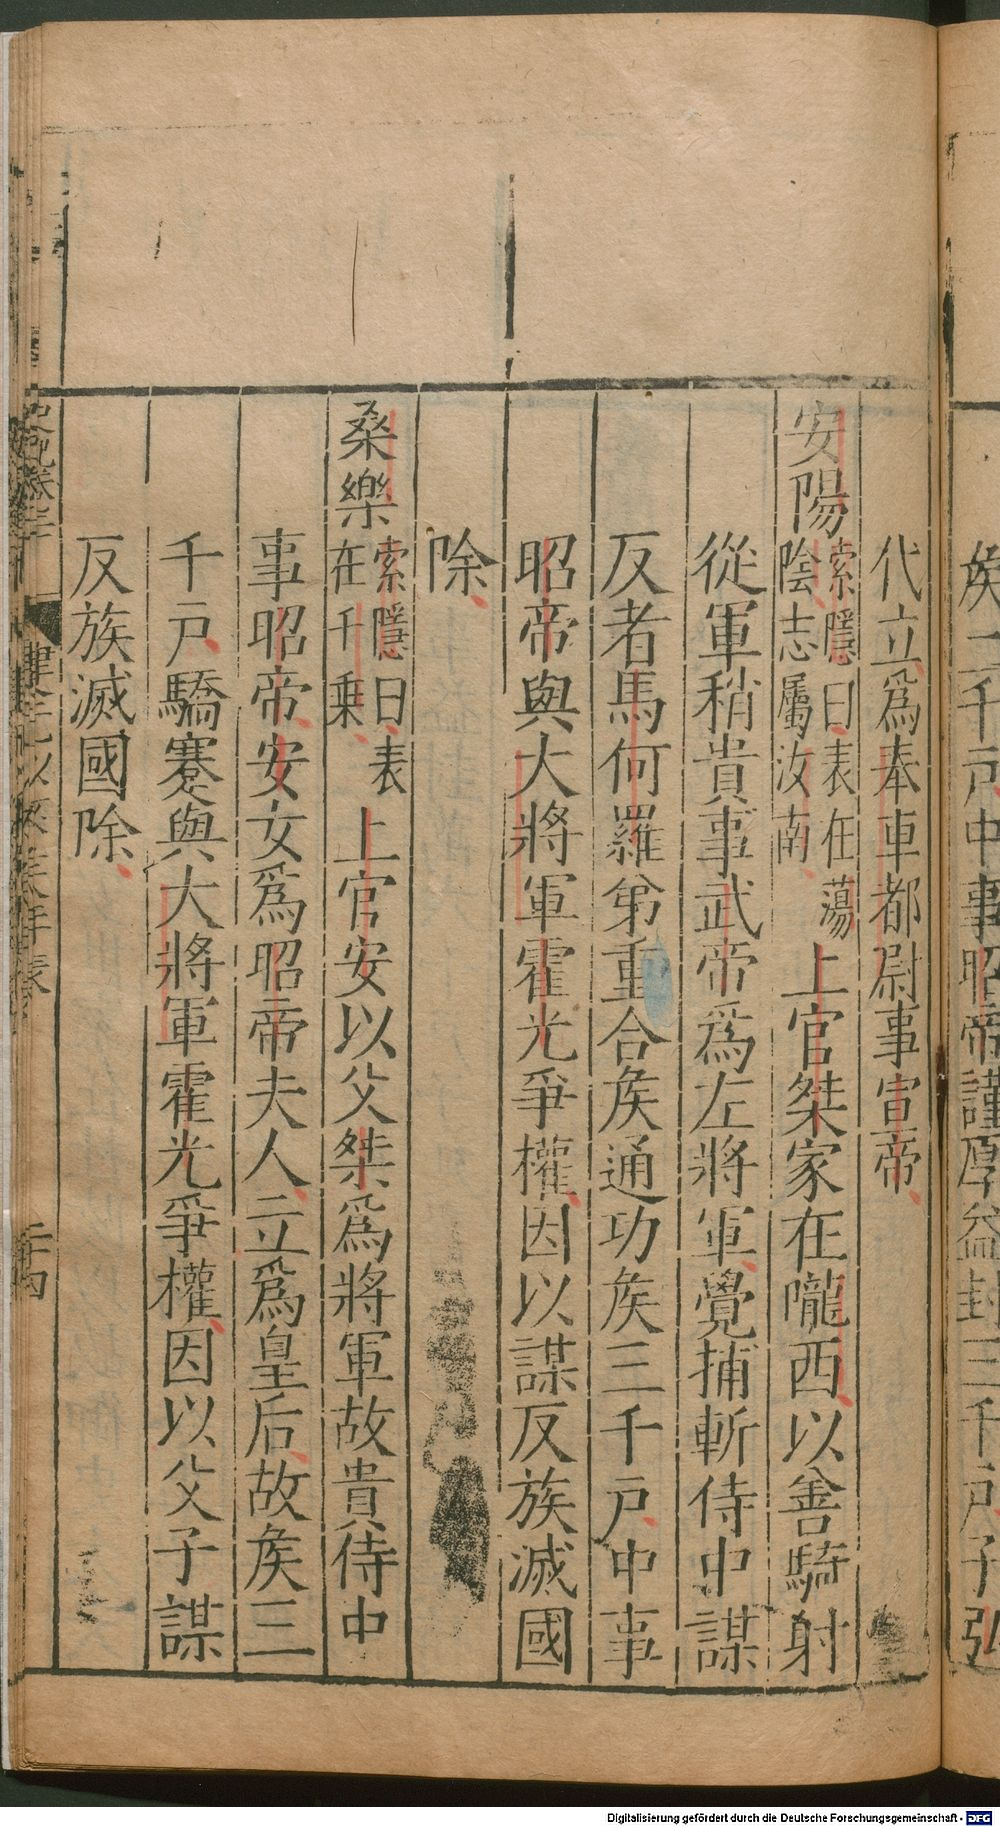 侯二千戶中事昭帝謹厚益封三千戶子弘
代立爲奉車都尉事宣帝
安陽索隱曰表在蕩陰志屬汝南上官桀家在隴西以善騎射
從軍稍貴事武帝爲左將軍覺捕斬侍中謀
反者馬何羅弟重合矦通功矦三千戶中事
昭帝與大將軍霍光爭權因以謀反族滅國
除
桑樂索隱曰表在千乗上官安以父桀爲將軍故貴侍中
事昭帝安女爲昭帝夫人立爲皇后故矦三
千戶驕蹇與大將軍霍光爭權因以父子謀
反族滅國除
史記卷二十
Digitalisierung gefördert durch die Deutsche Forschungsgemeinschaft - DFG